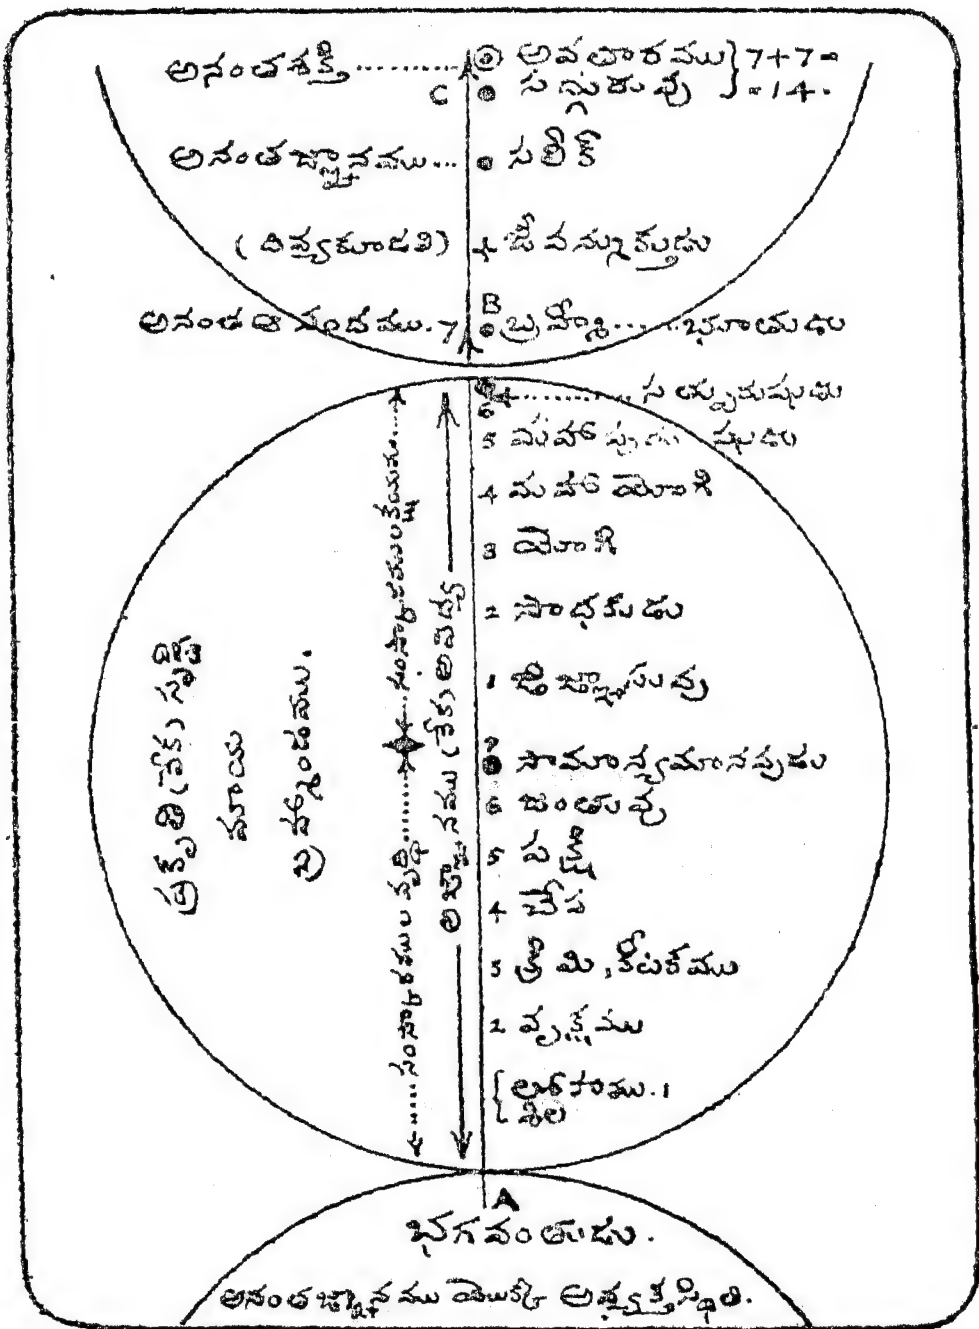 అనంతశక్తి .......... అవతారము } 7+7=
C సద్గురువు } =14.
అనంతజ్ఞానము... సలీక్
(దివ్యకూడలి) జీవన్ముక్తుడు
B
అనంత ఆనందము. 7 బ్రహ్మీ......భూతుడు
............ సత్పురుషుడు
6
5 మహాపురుషుడు
4 మహాయోగి
3 యోగి
2 సాధకుడు
1 జిజ్ఞాసువు
7 సామాన్యమానవుడు
6 జంతువు
5 పక్షి
4 చేప
3 క్రిమి, కీటకము
2 వృక్షము
{ లోహము. 1
శిల
ప్రకృతి (లేక) సృష్టి
మాయ
బ్రహ్మాండము.
......సంస్కారముల వృద్ధి...........సంస్కారములక్షయము......
అజ్ఞానము (లేక) అవిద్య
A
భగవంతుడు.
అనంతజ్ఞానము యొక్క అవ్యక్తస్థితి.